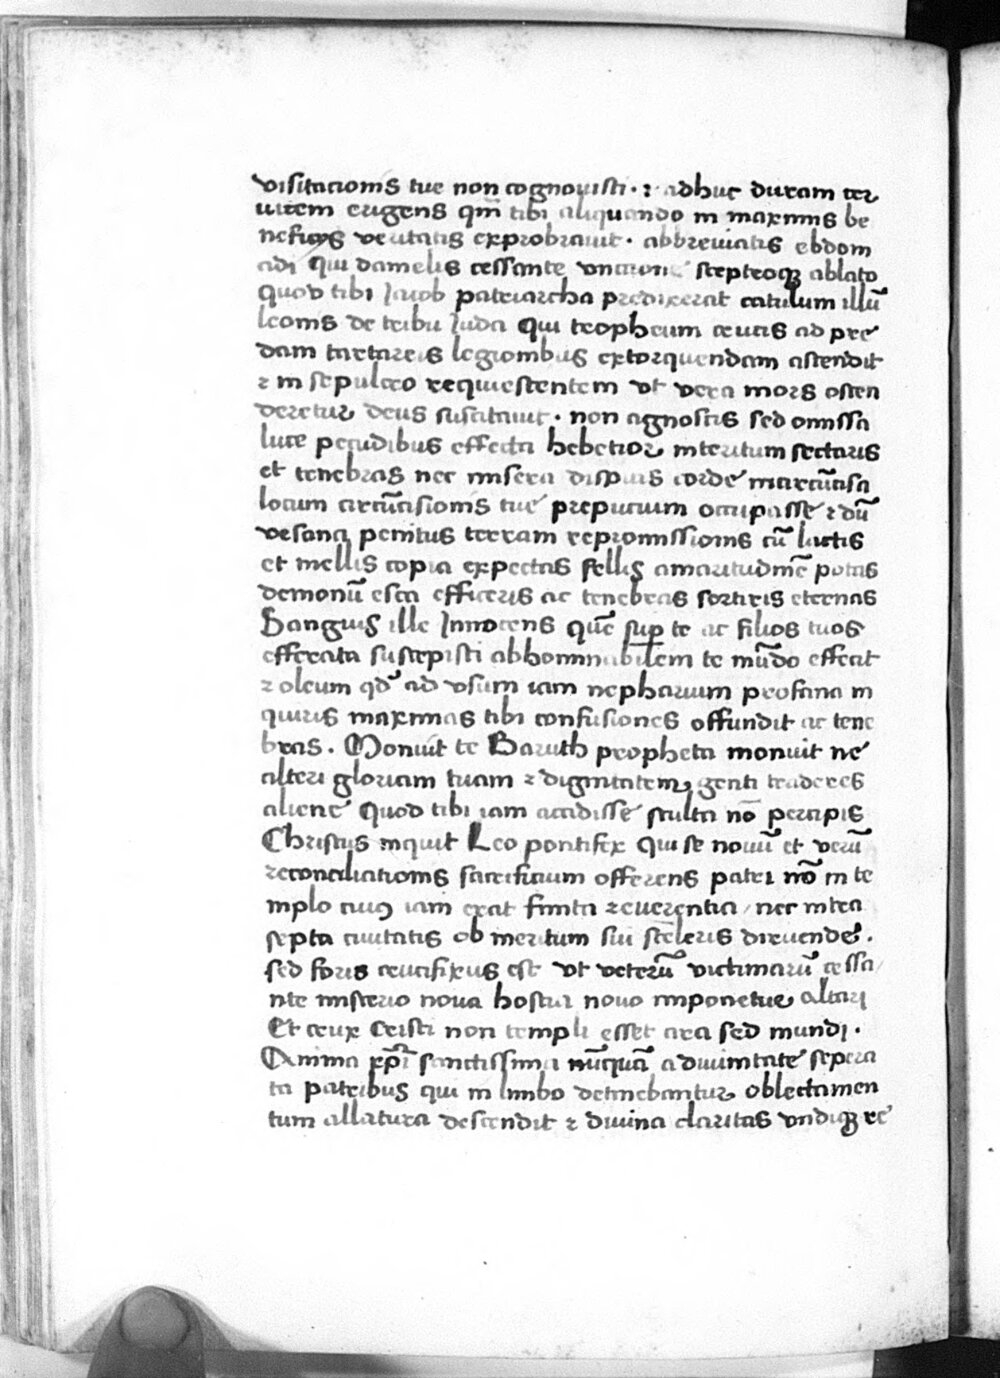 visitacionis tue non cognouisti · ⁊ adhuc duram cer
uicem erigens qm̄ tibi aliquando in maximis be
neficijs veritatis exprobrauit · abbreuiatis ebdom
adi qui danielis cessante vnctione sceptroqꝫ ablato
quod tibi Iacob patriarcha predixerat catulum illū
leonis de tribu Iuda qui tropheum crucis ad pre
dam tartareis legionibus extorquendam ascendit
⁊ in sepulcro requiescentem vt vera mors osten
deretur deus suscitauit · non agnoscis sed omissa
luce pecudibus effecta hebetior interitum sectaris
et tenebras nec misera dispicis corde incircūcisa
locum circūcisionis tue prepucium occupasse ⁊ dū
vesana penitus terram repromissionis cū lactis
et mellis copia expectas fellis amaritudinē potas
demonū esca efficeris ac tenebras sortiris eternas
Sanguis ille Innocens quē suꝑ te ac filios tuos
efferata suscepisti abhominabilem te mūdo effecit
⁊ oleum qd̛ ad vsum iam nepharium profana in
quiris maximas tibi confusiones offundit ac tene
bras . Monuit te Baruth propheta monuit ne
alteri gloriam tuam ⁊ dignitatem genti traderes
aliene Quod tibi iam accidisse stulta nō percipis
Christus inquit Leo pontifex Qui se nouū et verū
reconciliationis sacrificium offerens patri nō in te
mplo cuiꝰ iam erat finita reuerentia / nec intra
septa ciuitatis ob meritum sui sceleris diruende .
sed foris crucifixus est vt veterū victimarū cessa/
nte misterio noua hostia nouo imponetur altari
Et crux Cristi non templi esset ara sed mundi ·
Anima xp̄i sanctissima nūquā a diuinitate sepera
ta patribus qui in limbo detinebantur oblectamen
tum allatura descendit ⁊ diuina claritas vndiqꝫ re